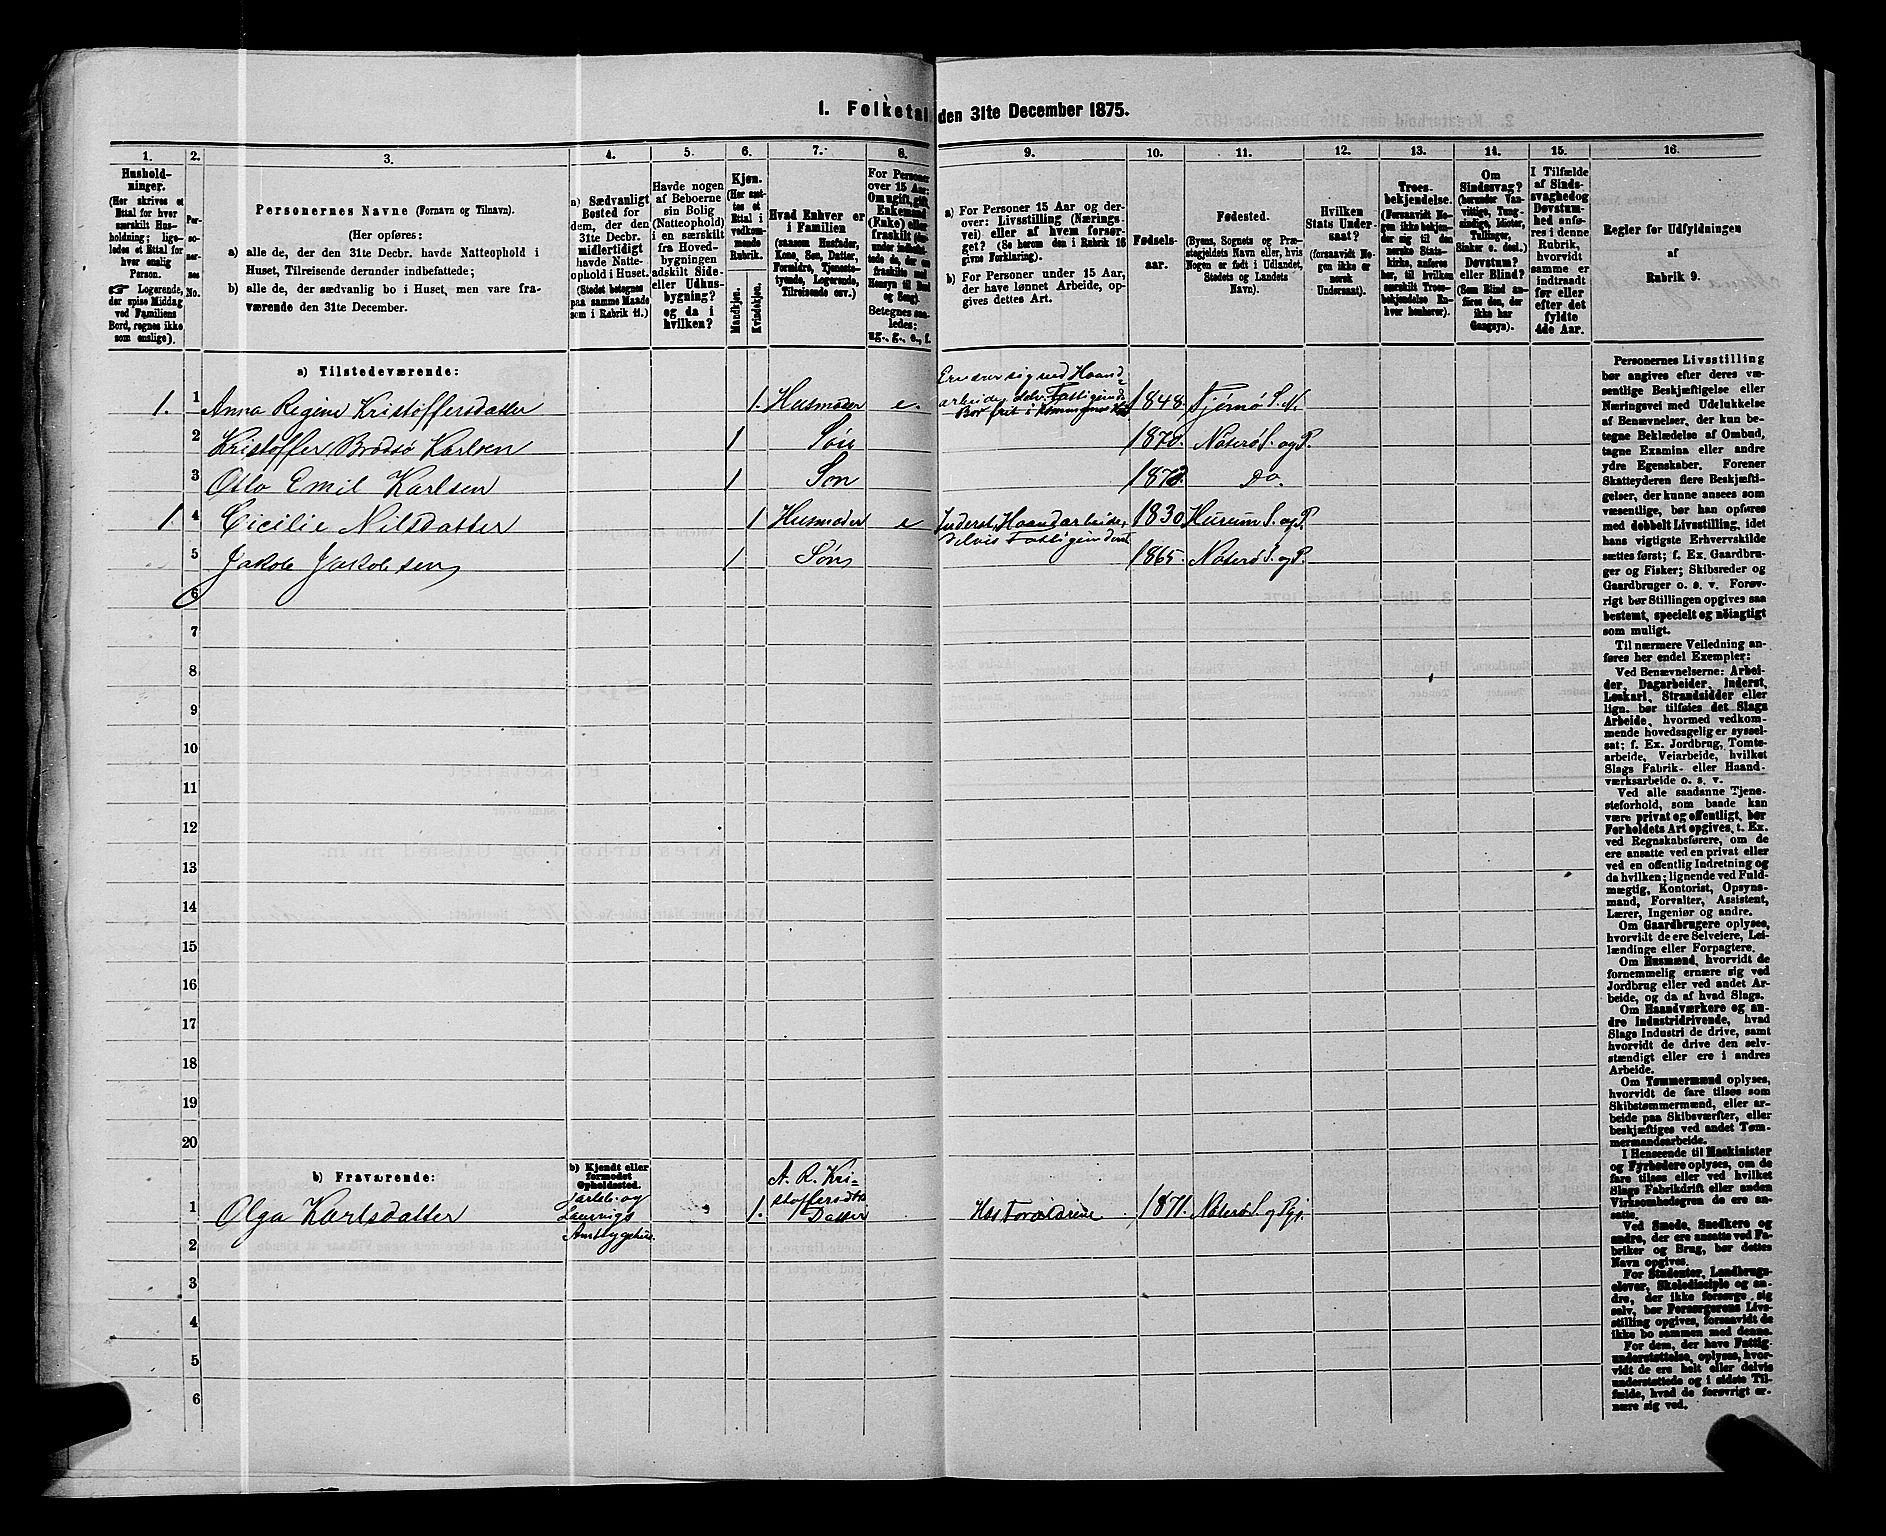 1. Folketal den 31te December 1875.
1. 2. 3. 4. 5. 6. 7. 8. 9. 10. 11. 12. 13. 14. 15. 16.
Hushold-
ninger.
(Her skrives et
Ettal for hver
særskilt Hus-
holdning; lige-
ledes et Ettal for
hver enslig
Person.
☞ Logerende,
der spise Middag
ved Familiens
Bord, regnes ikke
som enslige).
Per-
so-
ner-
nes
No.
Personernes Navne (Fornavn og Tilnavn).
(Her opføres:
a) alle de, der den 31te Decbr. havde Natteophold i
Huset, Tilreisende derunder indbefattede;
b) alle de, der sædvanlig bo i Huset, men vare fra-
værende den 31te December.
a) Sædvanligt
Bosted for
dem, der den
31te Decbr.
midlertidigt
havde Natte-
ophold i Huset.
(Stedet betegnes
paa samme Maade
som i Rubrik 11.)
Havde nogen
af Beboerne
sin Bolig
(Natteophold)
i en særskilt
fra Hoved-
bygningen
adskilt Side-
eller Udhus-
bygning?
og da i
hvilken?
Kjøn.
(Her sæt-
tes et
Ettal i
vedkom-
mende
Rubrik.
Mandkjøn.
Kvindekjøn.
Hvad Enhver er
i Familien
(saasom Husfader,
Kone, Søn, Datter,
Forældre, Tjeneste-
tyende, Logerende,
Tilreisende osv.)
For Personer
over 15 Aar:
Om ugift, gift,
Enkemand
(Enke) eller
fraskilt
Betegnes saa-
ledes:
ug., g., e., f.
a) For Personer 15 Aar og der-
over: Livsstilling (Nærings-
vei) eller af hvem forsør-
get? (Se herom den i Rubrik 16
givne Forklaring).
b) For Personer under 15 Aar,
der have lønnet Arbeide, op-
gives dettes Art.
Fødsels-
aar.
Fødested.
(Byens, Sognets og Præ-
stegjeldets Navn eller, hvis
Nogen er født i Udlandet,
Stedets og Landets
Navn).
Hvilken
Stats Under-
saat?
(forsaavidt No-
gen ikke er
norsk
Undersaat).
Troes-
bekjendelse.
(Forsaavidt No-
gen ikke bekjen-
der sig til den
norske Stats-
kirke, anføres
her, til hvilken
særskilt Troes-
bekjendelse En-
hver henhører).
Om
Sindssvag?
(herunder Van-
vittige, Tung-
sindige, Idioter,
Tullinger,
Sinker o. desl.)
Døvstum?
eller Blind?
(Som Blind an-
føres den, der
ikke har
Gangsyn).
I Tilfælde
af Sinds-
svaghed og
Døvstum-
hed anfø-
res i denne
Rubrik,
hvorvidt
samme er
indtraadt
før eller
efter det
fyldte
4de Aar.
Regler for Udfyldningen
af
Rubrik 9.
a) Tilstedeværende:
1. 1 Anna Regine Kristoffersdatter 1. Husmoder e. Ernærer sig ved Haand-
arbeide, delv. Fattigund. 1848. Tjømø S. N.
Bor frit i
2 Kristoffer Brodsø Karlsen 1 Søn 1870. Nøterø S. og P.
3 Otto Emil Karlsen 1 Søn 1873. Do.
1. 4 Cicilie Nilsdatter 1 Husmoder e Inderst, Haandarbeide, 1830 Hurum S. og P.
delvis Fattigunderst
5 Jakob Jakobsen 1 Søn 1865. Nøterø S. og P.
6
7
8
9
10
11
12
13
14
15
16
17
18
19
20
b) Fraværende:
b) Kjendt eller
formodet
Opholdssted.
1 Olga Karlsdatter Jarlsb. og
Laurvigs
Amtssygehus. 1. A. R. Kri-
stoffersdtr
Datter Hos Forældrene 1871. Nøterø S. og Pgj.
2
3
4
5
6
Personernes Livsstilling
bør angives efter deres væ-
sentlige Beskjæftigelse eller
Næringsvei med Udelukkelse
af Benævnelser, der kun be-
tegne Beklædelse af Ombud,
tagne Examina eller andre
ydre Egenskaber. Forener
Skatteyderen flere Beskjæfti-
gelser, der kunne ansees som
væsentlige, bør han opføres
med dobbelt Livsstilling, idet
hans vigtigste Erhvervskilde
sættes først; f. Ex. Gaardbru-
ger og Fisker; Skibsreder og
Gaardbruger o. s. v. Forøv-
rigt bør Stillingen opgives saa
bestemt, specielt og nöiagtigt
som muligt.
Til nærmere Veiledning an-
føres her endel Exempler:
Ved Benævnelserne: Arbei-
der, Dagarbeider, Inderst,
Løskarl, Strandsidder eller
lign. bør tilføies det Slags
Arbeide, hvormed vedkom-
mende hovedsagelig er syssel-
sat; f. Ex. Jordbrug, Tomte-
arbeide, Veiarbeide, hvilket
Slags Fabrik- eller Haand-
værksarbeide o. s. v.
Ved alle saadanne Tjene-
steforhold, som baade kan
være privat og offentligt, bør
Forholdets Art opgives, t. Ex.
ved Regnskabsførere, om de
ere ansatte ved en privat eller
ved en offentlig Indretning og
da hvilken; lignende ved Fuld-
mægtig, Kontorist, Opsyns-
mand, Forvalter, Assistent,
Lærer, Ingeniør og andre.
Om Gaardbrugere oplyses,
hvorvidt de ere Selveiere, Lei-
lændinge eller Forpagtere.
Om Husmænd, hvorvidt de
fornemmelig ernære sig ved
Jordbrug eller ved andet Ar-
beide, og da af hvad Slags.
Om Haandværkere og an-
dre Industridrivende, hvad
Slags Industri de drive, samt
hvorvidt de drive den selv-
stændigt eller ere i andres
Arbeide.
Om Tømmermænd oplyses,
hvorvidt de fare tilsøs som
Skibstømmermænd, eller ar-
beide paa Skibsværfter, eller
beskjæftiges ved andet Tøm-
mermandsarbeide.
I Henseende til Maskinister
og Fyrbødere oplyses, om de
fare tilsøs eller ved hvilket
Slags Fabrikdrift eller anden
Virksomhedsgren de ere an-
satte.
Ved Smede, Snedkere og
andre, der ere ansatte ved Fa-
briker og Brug, bør dettes
Navn opgives.
For Studenter, Landbrugs-
elever, Skoledisciple og an-
dre, der ikke forsørge sig
selv, bør Forsørgerens Livs-
stilling opgives, forsaavidt de
ikke bo sammen med denne.
For dem, der have Fattig-
understøttelse, oplyses, hvor-
vidt de ere helt eller delvis
understøttede og i sidste Til-
fælde, hvad de forøvrigt er-
nære sig ved.